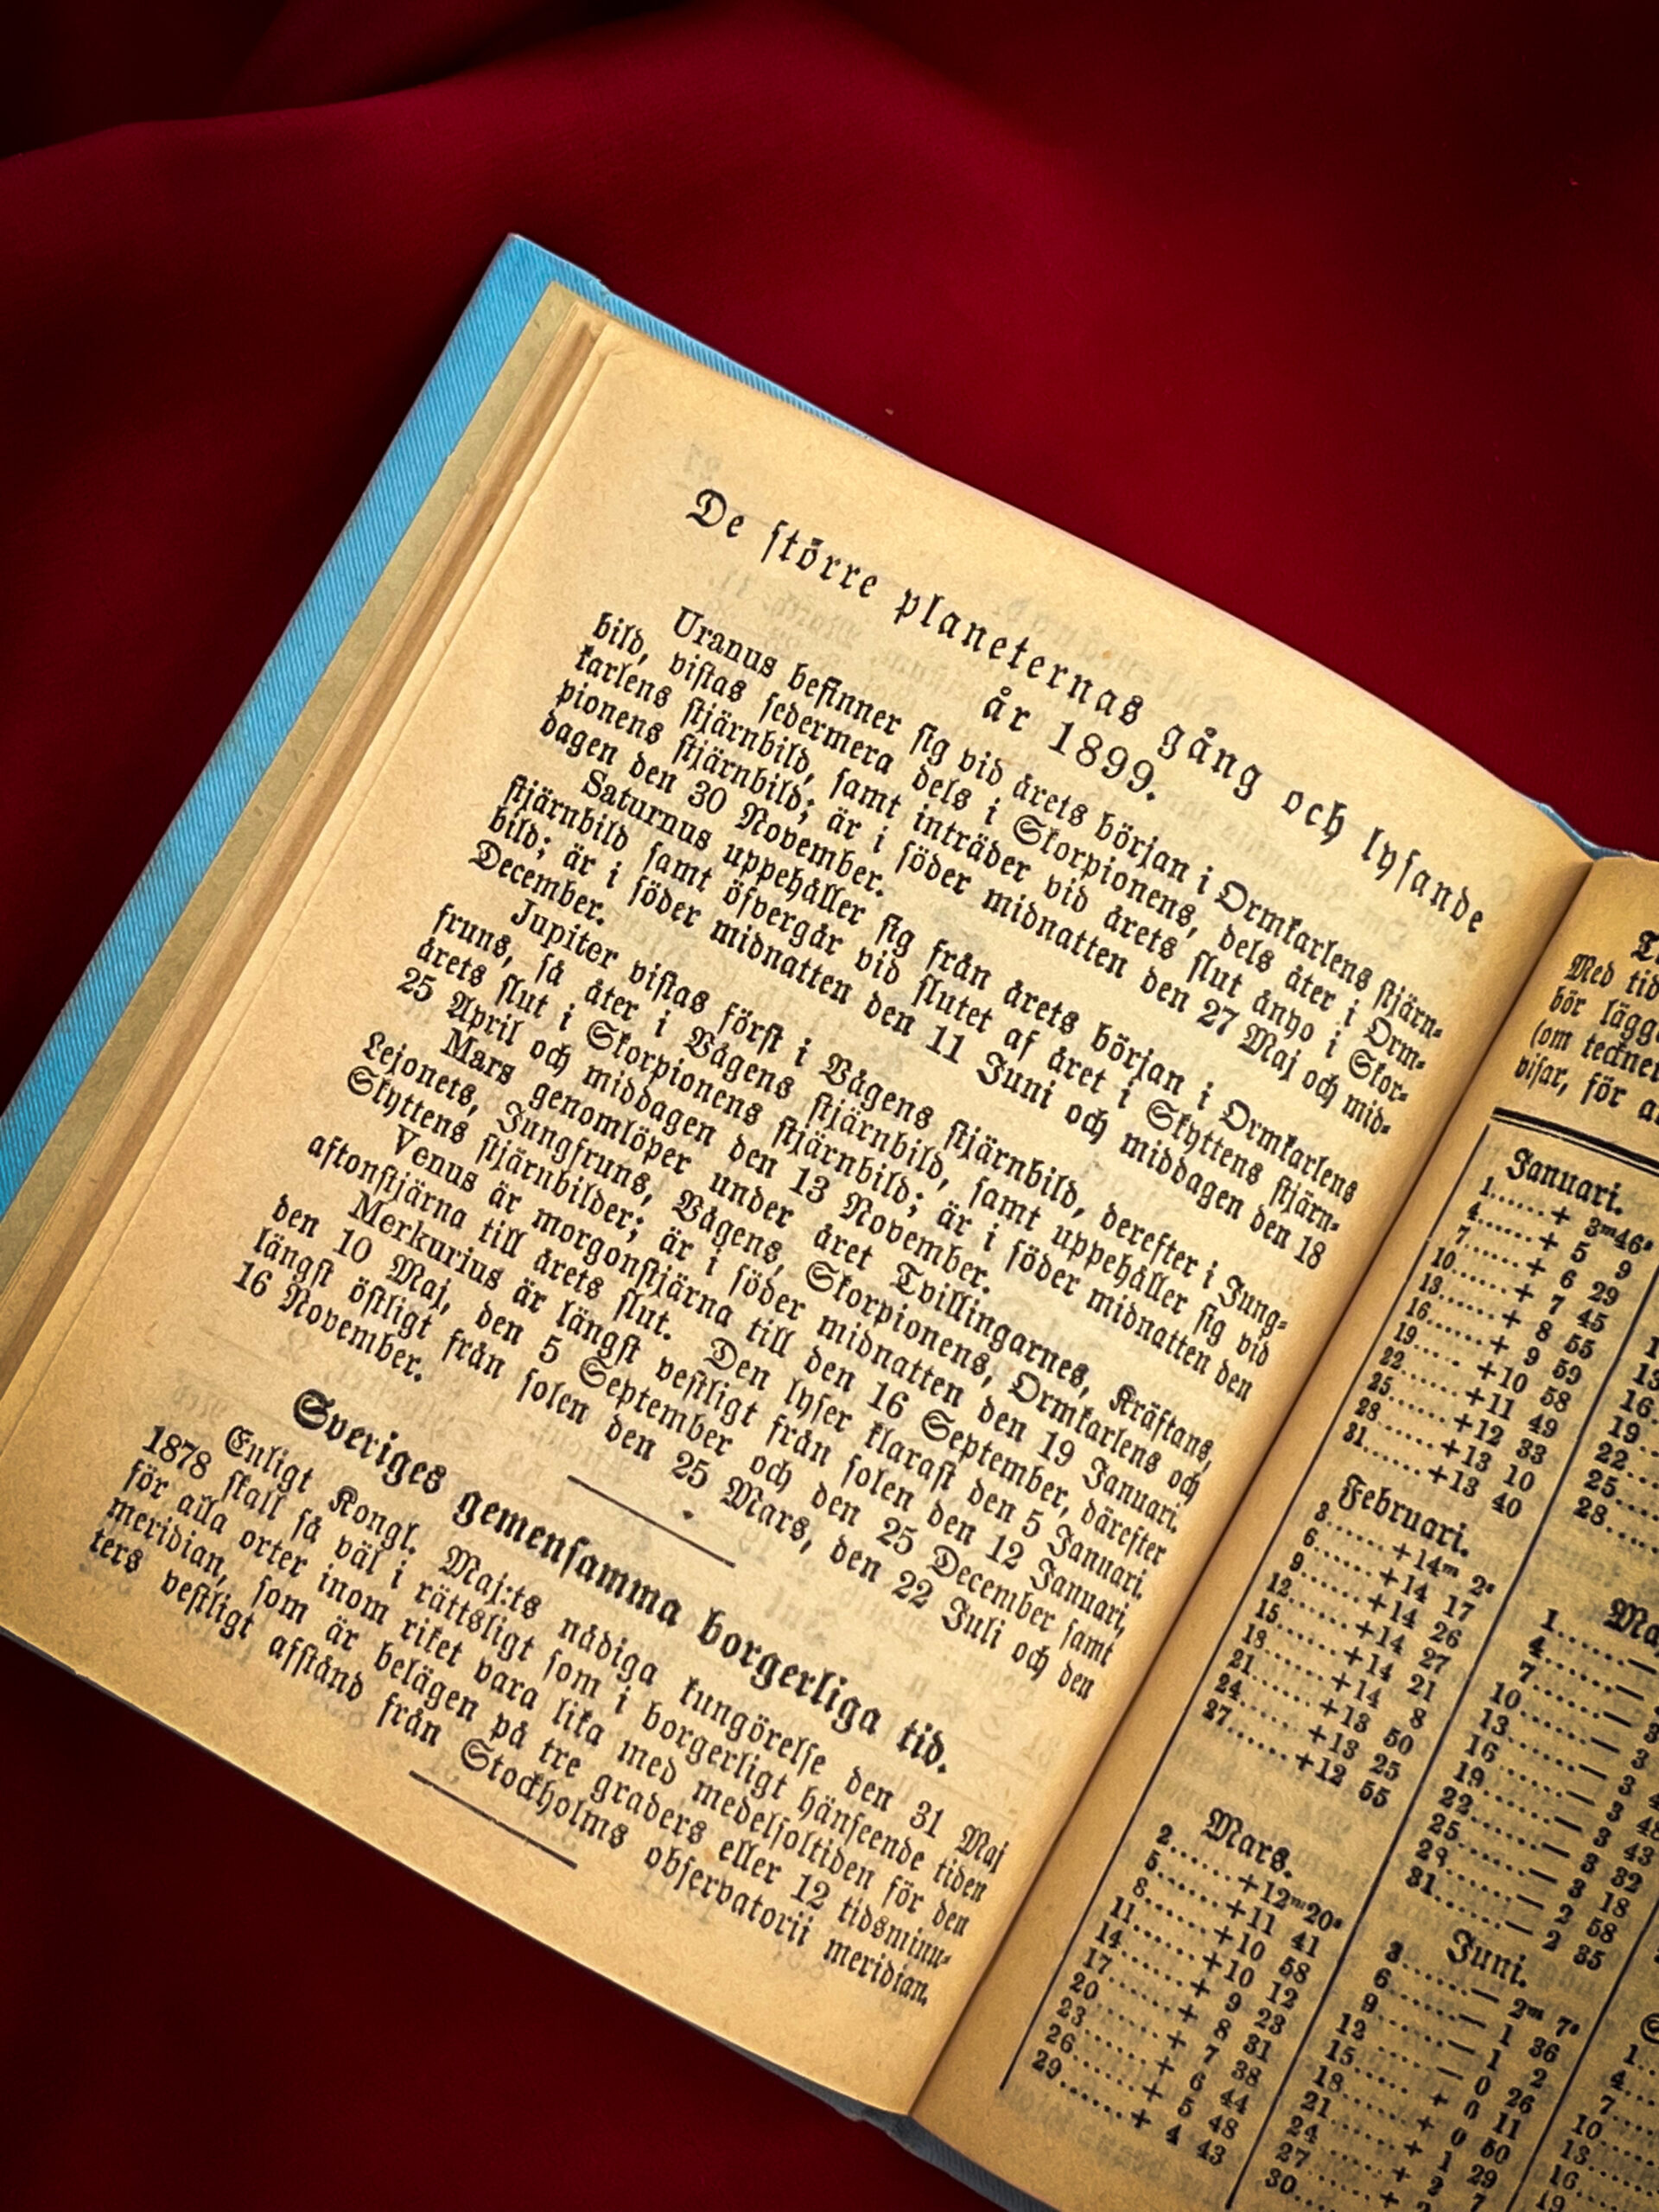 De större planeternas gång och lysande
år 1899.
Uranus befinner sig vid årets början i Ormkarlens stjärn-
bild, vistas sedermera dels i Skorpionens, dels åter i Orm-
karlens stjärnbild, samt inträder vid årets slut ånyo i Skor-
pionens stjärnbild; är i söder midnatten den 27 Maj och mid-
dagen den 30 November.
Saturnus uppehåller sig från årets början i Ormkarlens
stjärnbild samt öfvergår vid slutet af året i Skyttens stjärn-
bild; är i söder midnatten den 11 Juni och middagen den 18
December.
Jupiter vistas först i Vågens stjärnbild, derefter i Jung-
fruns, så åter i Vågens stjärnbild, samt uppehåller sig vid
årets slut i Skorpionens stjärnbild; är i söder midnatten den
25 April och middagen den 13 November.
Mars genomlöper under året Tvillingarnes, Kräftans,
Lejonets, Jungfruns, Vågens, Skorpionens, Ormkarlens och
Skyttens stjärnbilder; är i söder midnatten den 19 Januari.
Venus är morgonstjärna till den 16 September, därefter
aftonstjärna till årets slut. Den lyser klarast den 5 Januari.
Merkurius är längst vestligt från solen den 12 Januari,
den 10 Maj, den 5 September och den 25 December samt
längst östligt från solen den 25 Mars, den 22 Juli och den
16 November.
Sveriges gemensamma borgerliga tid.
Enligt Kongl. Maj:ts nådiga kungörelse den 31 Maj
1878 skall så väl i rättsligt som i borgerligt hänseende tiden
för alla orter inom riket vara lika med medelsoltiden för den
meridian, som är belägen på tre graders eller 12 tidsminu-
ters vestligt afstånd från Stockholms observatorii meridian.
Med tid
bör lägg
(om tecknet
visar, för a
Januari.
1......+ 3m46s
4......+ 5 9
7......+ 6 29
10......+ 7 45
13......+ 8 55
16......+ 9 59
19......+10 58
22......+11 49
25......+12 33
28......+13 10
31......+13 40
Februari.
3......+14m 2s
6......+14 17
9......+14 26
12......+14 27
15......+14 21
18......+14 8
21......+13 50
24......+13 25
27......+12 55
Mars.
2......+12m20s
5......+11 41
8......+10 58
11......+10 12
14......+ 9 23
17......+ 8 31
20......+ 7 38
23......+ 6 44
26......+ 5 48
29......+ 4 43
13
16
19
22
25
28
Ma
1......—
4......—
7......—
10......— 3
13......— 3
16......— 3 4
19......— 3 48
22......— 3 43
25......— 3 32
28......— 3 18
31......— 2 58
— 2 35
Juni.
3......— 2m 7s
6......— 1 36
9......— 1 2
12......— 0 26
15......+ 0 11
18......+ 0 50
21......+ 1 29
24......+ 2 7
27......+ 2
30
1
4
7
10
13
16
19